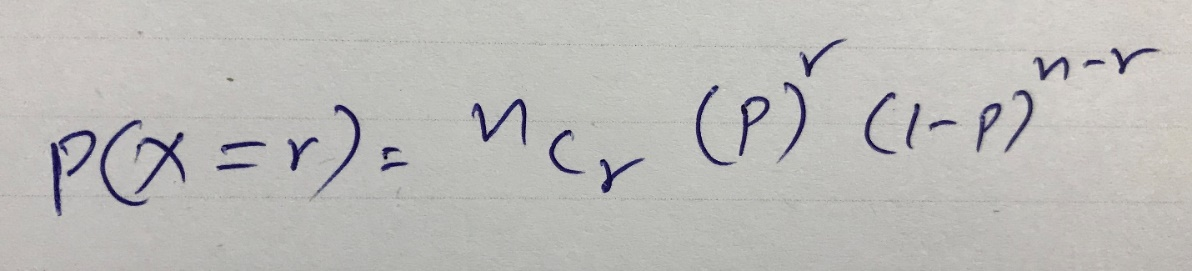 P(X=r)= ⁿCᵣ (P)ʳ (1-P)ⁿ⁻ʳ